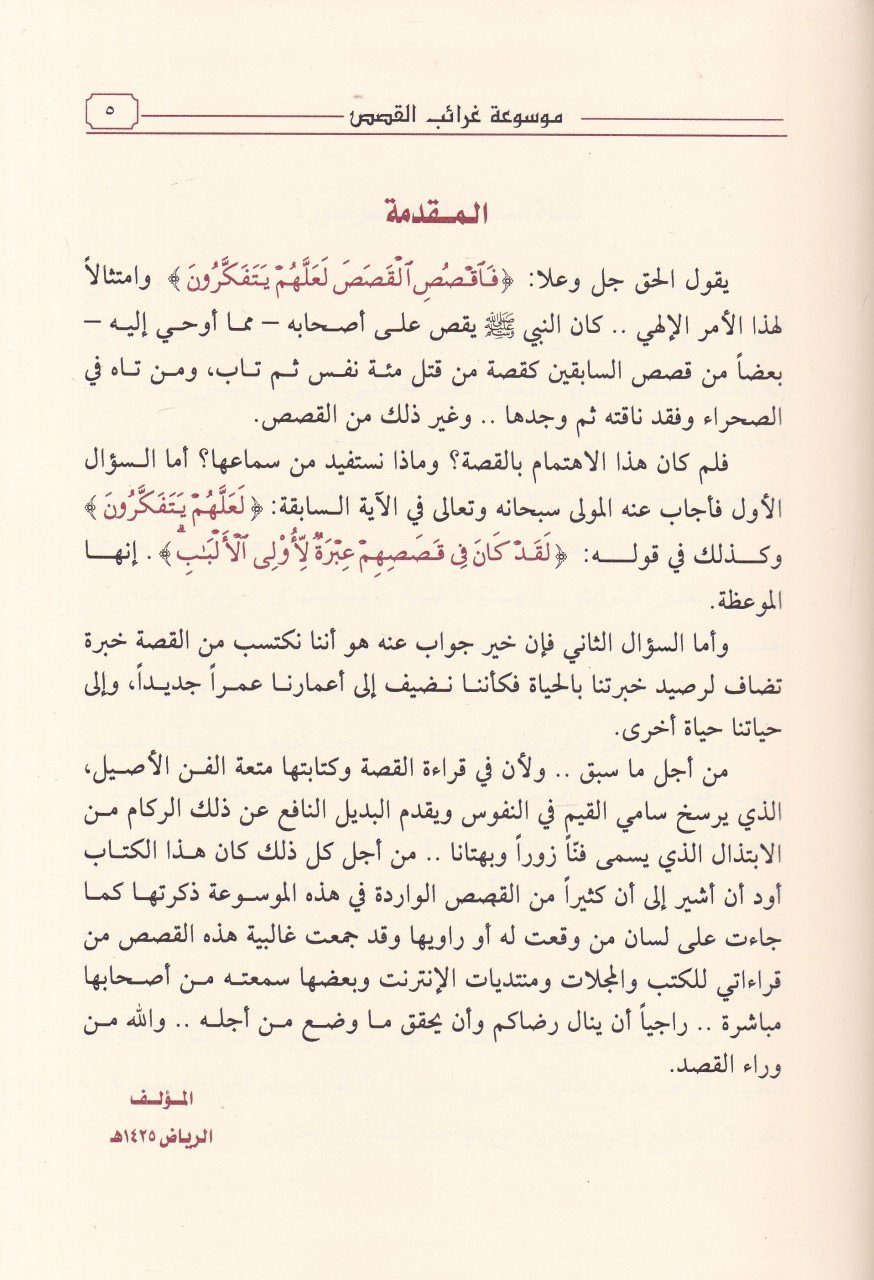 موسوعة غرائب القصص
٥
المـقدمة
يقول الحق جل وعلا: ﴿فَٱقْصُصِ ٱلْقَصَصَ لَعَلَّهُمْ يَتَفَكَّرُونَ﴾ وامتثالاً
لهذا الأمر الإلهي .. كان النبي ﷺ يقص على أصحابه – مما أوحي إليه –
بعضاً من قصص السابقين كقصة من قتل مئة نفس ثم تاب، ومن تاه في
الصحراء وفقد ناقته ثم وجدها .. وغير ذلك من القصص.
فلم كان هذا الاهتمام بالقصة؟ وماذا نستفيد من سماعها؟ أما السؤال
الأول فأجاب عنه المولى سبحانه وتعالى في الآية السابقة: ﴿لَعَلَّهُمْ يَتَفَكَّرُونَ﴾
وكذلك في قوله: ﴿لَقَدْ كَانَ فِى قَصَصِهِمْ عِبْرَةٌ لِّأُوْلِى ٱلْأَلْبَٰبِۗ﴾. إنهـا
الموعظة.
وأما السؤال الثاني فإن خير جواب عنه هو أننا نكتسب من القصة خبرة
تضاف لرصيد خبرتنا بالحياة فكأننا نضيف إلى أعمارنا عمراً جديداً، وإلى
حياتنا حياة أخرى.
من أجل ما سبق .. ولأن في قراءة القصة وكتابتها متعة الفن الأصيل،
الذي يرسخ سامي القيم في النفوس ويقدم البديل النافع عن ذلك الركام من
الابتذال الذي يسمى فنّاً زوراً وبهتانا .. من أجل كل ذلك كان هذا الكتاب
أود أن أشير إلى أن كثيراً من القصص الواردة في هذه الموسوعة ذكرتها كما
جاءت على لسان من وقعت له أو راويها وقد جمعت غالبية هذه القصص من
قراءاتي للكتب والمجلات ومنتديات الإنترنت وبعضها سمعته من أصحابها
مباشرة .. راجياً أن ينال رضاكم وأن يحقق ما وضع من أجله .. والله من
وراء القصد.
المؤلف
الرياض ١٤٢٥هـ